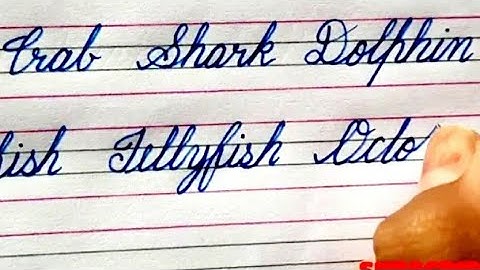 Crab Shark Dolphin
fish Jellyfish Octo